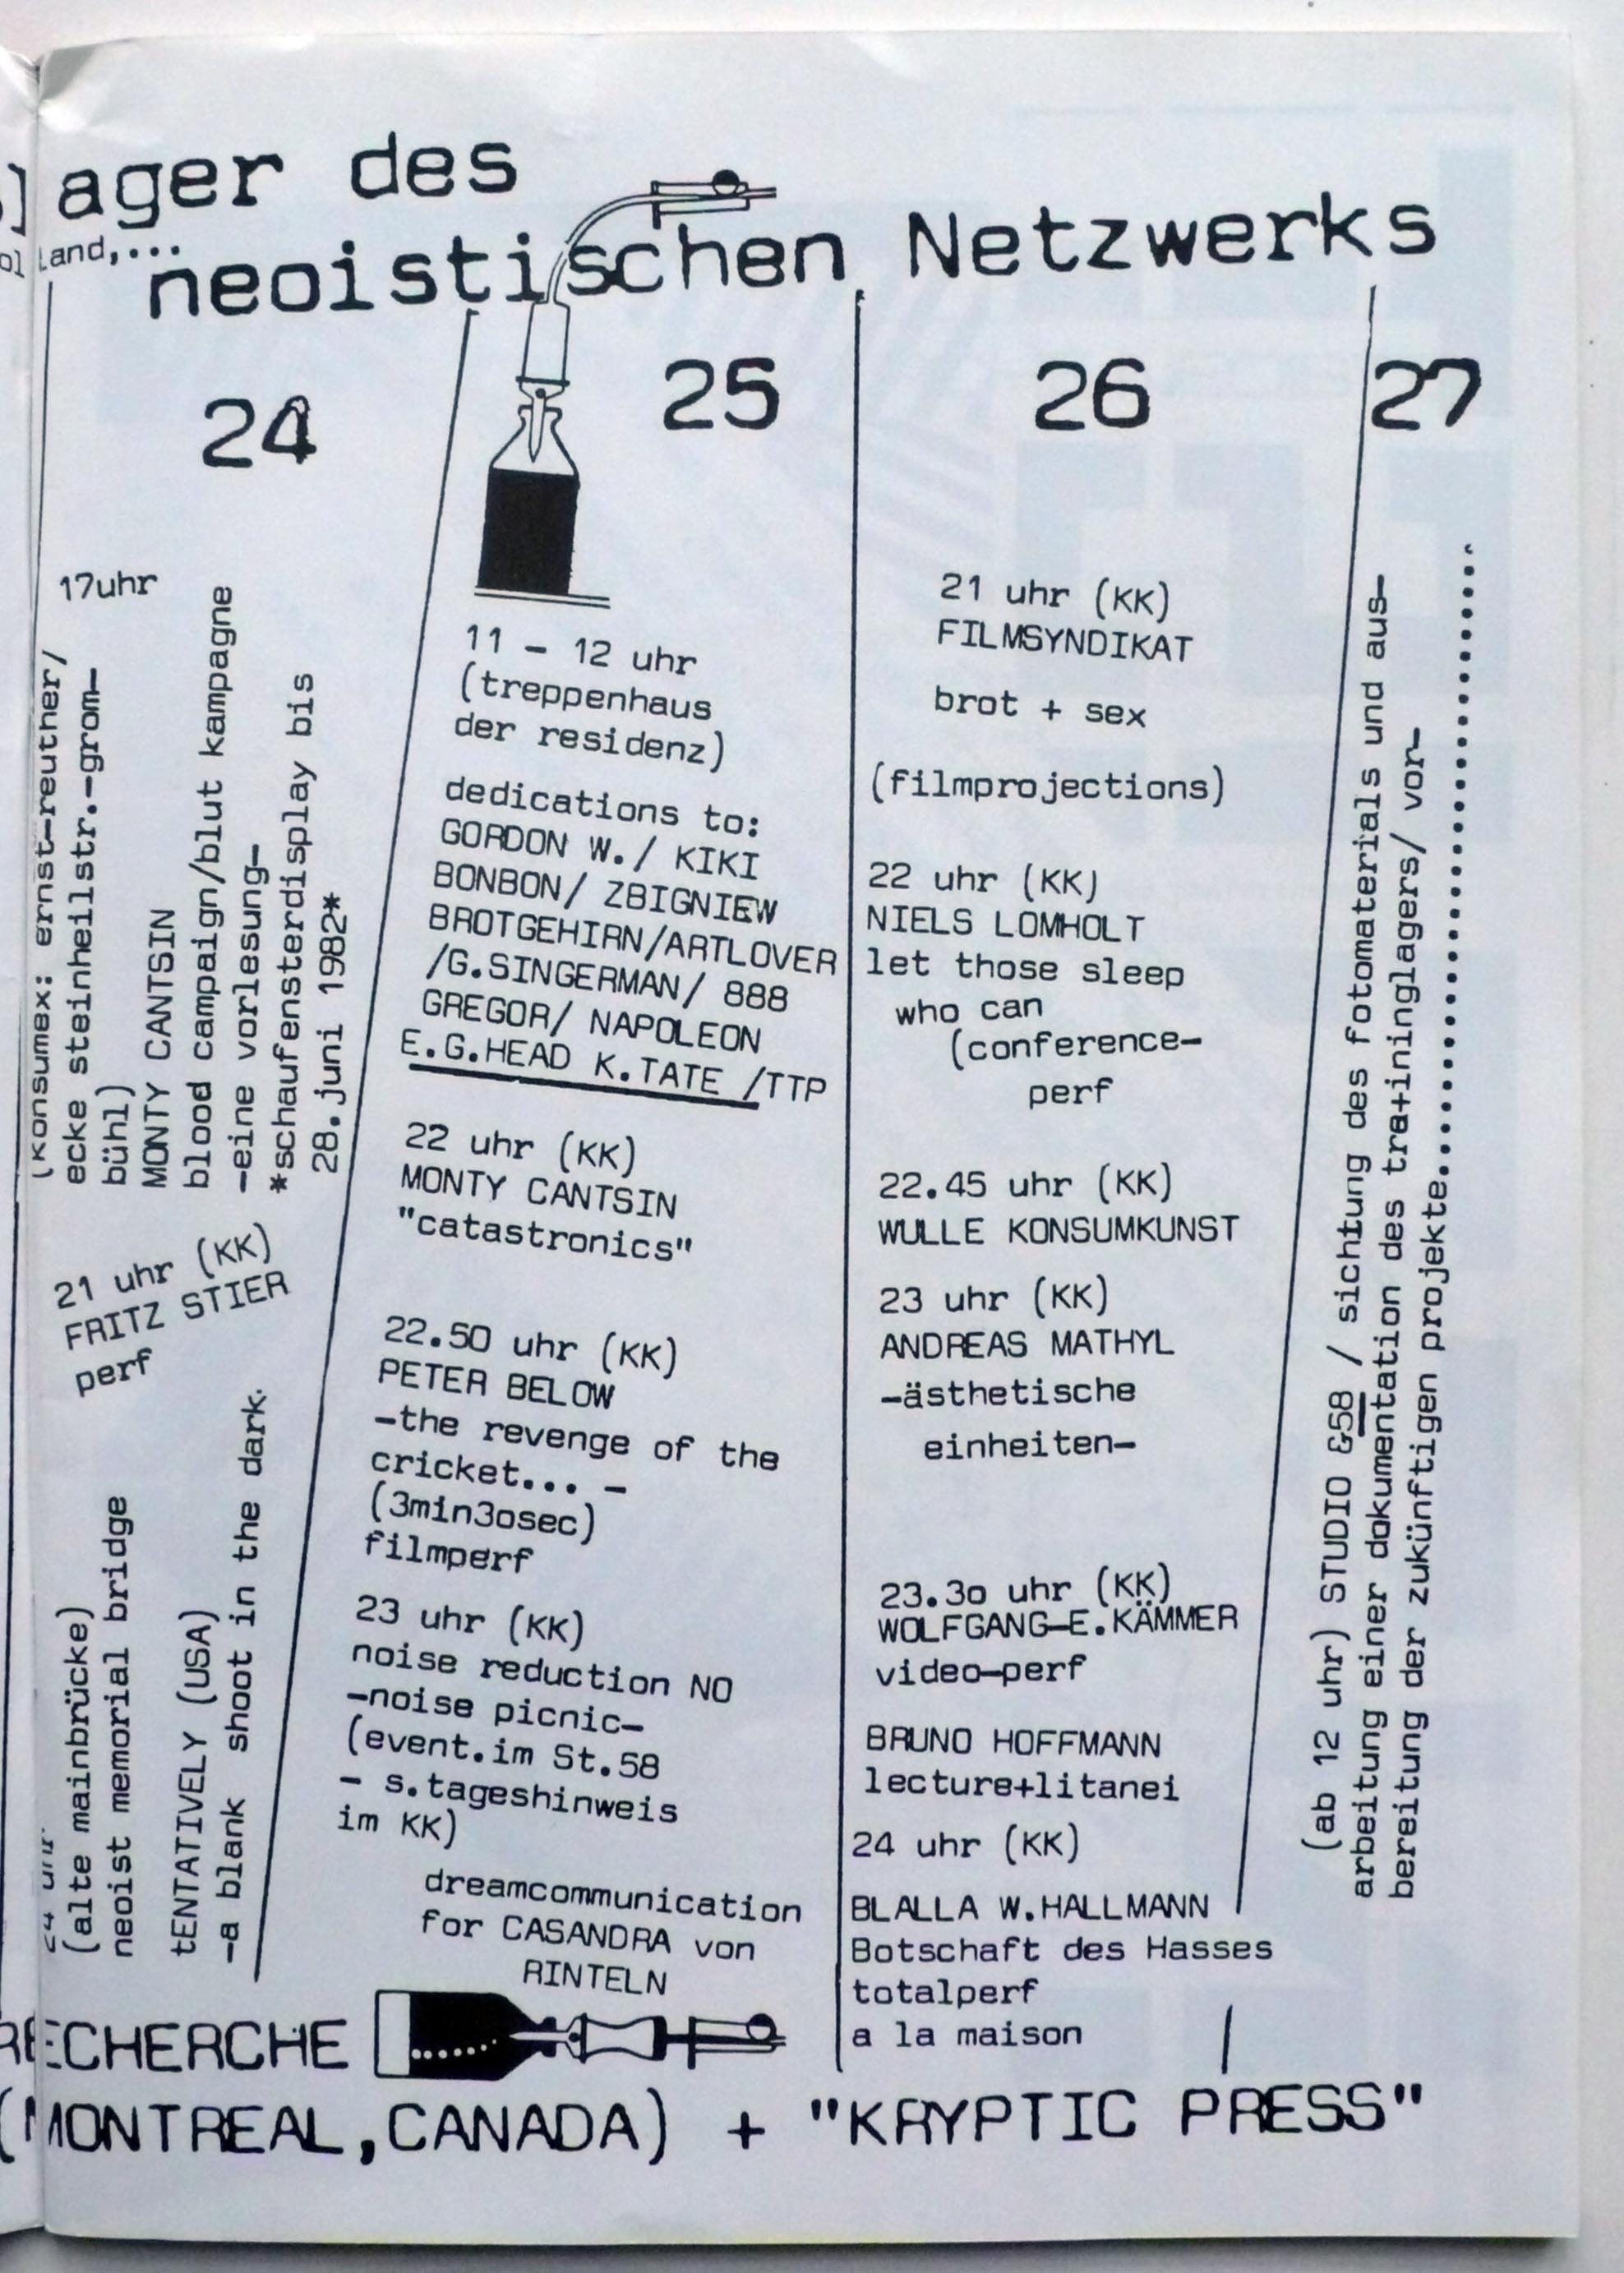 ]ager des
land,...
neoistischen Netzwerks
24
17uhr
(konsumex: ernst-reuther/
ecke steinheilstr.-grom-
bühl)
MONTY CANTSIN
blood campaign/blut kampagne
-eine vorlesung-
*schaufensterdisplay bis
28.juni 1982*
21 uhr (KK)
FRITZ STIER
perf
24 uhr
(alte mainbrücke)
neoist memorial bridge
tENTATIVELY (USA)
-a blank shoot in the dark.
25
11 - 12 uhr
(treppenhaus
der residenz)
dedications to:
GORDON W./ KIKI
BONBON/ ZBIGNIEW
BROTGEHIRN/ARTLOVER
/G.SINGERMAN/ 888
GREGOR/ NAPOLEON
E.G.HEAD K.TATE /TTP
22 uhr (KK)
MONTY CANTSIN
"catastronics"
22.50 uhr (KK)
PETER BELOW
-the revenge of the
cricket... -
(3min3osec)
filmperf
23 uhr (KK)
noise reduction NO
-noise picnic-
(event.im St.58
- s.tageshinweis
im KK)
dreamcommunication
for CASANDRA von
RINTELN
26
21 uhr (KK)
FILMSYNDIKAT
brot + sex
(filmprojections)
22 uhr (KK)
NIELS LOMHOLT
let those sleep
who can
(conference-
perf
22.45 uhr (KK)
WULLE KONSUMKUNST
23 uhr (KK)
ANDREAS MATHYL
-ästhetische
einheiten-
23.3o uhr (KK)
WOLFGANG-E.KÄMMER
video-perf
BRUNO HOFFMANN
lecture+litanei
24 uhr (KK)
BLALLA W.HALLMANN
Botschaft des Hasses
totalperf
a la maison
27
(ab 12 uhr) STUDIO &58 / sichtung des fotomaterials und aus-
arbeitung einer dokumentation des tra+ininglagers/ vor-
bereitung der zukünftigen projekte..........................................
RECHERCHE
(MONTREAL,CANADA) + "KRYPTIC PRESS"